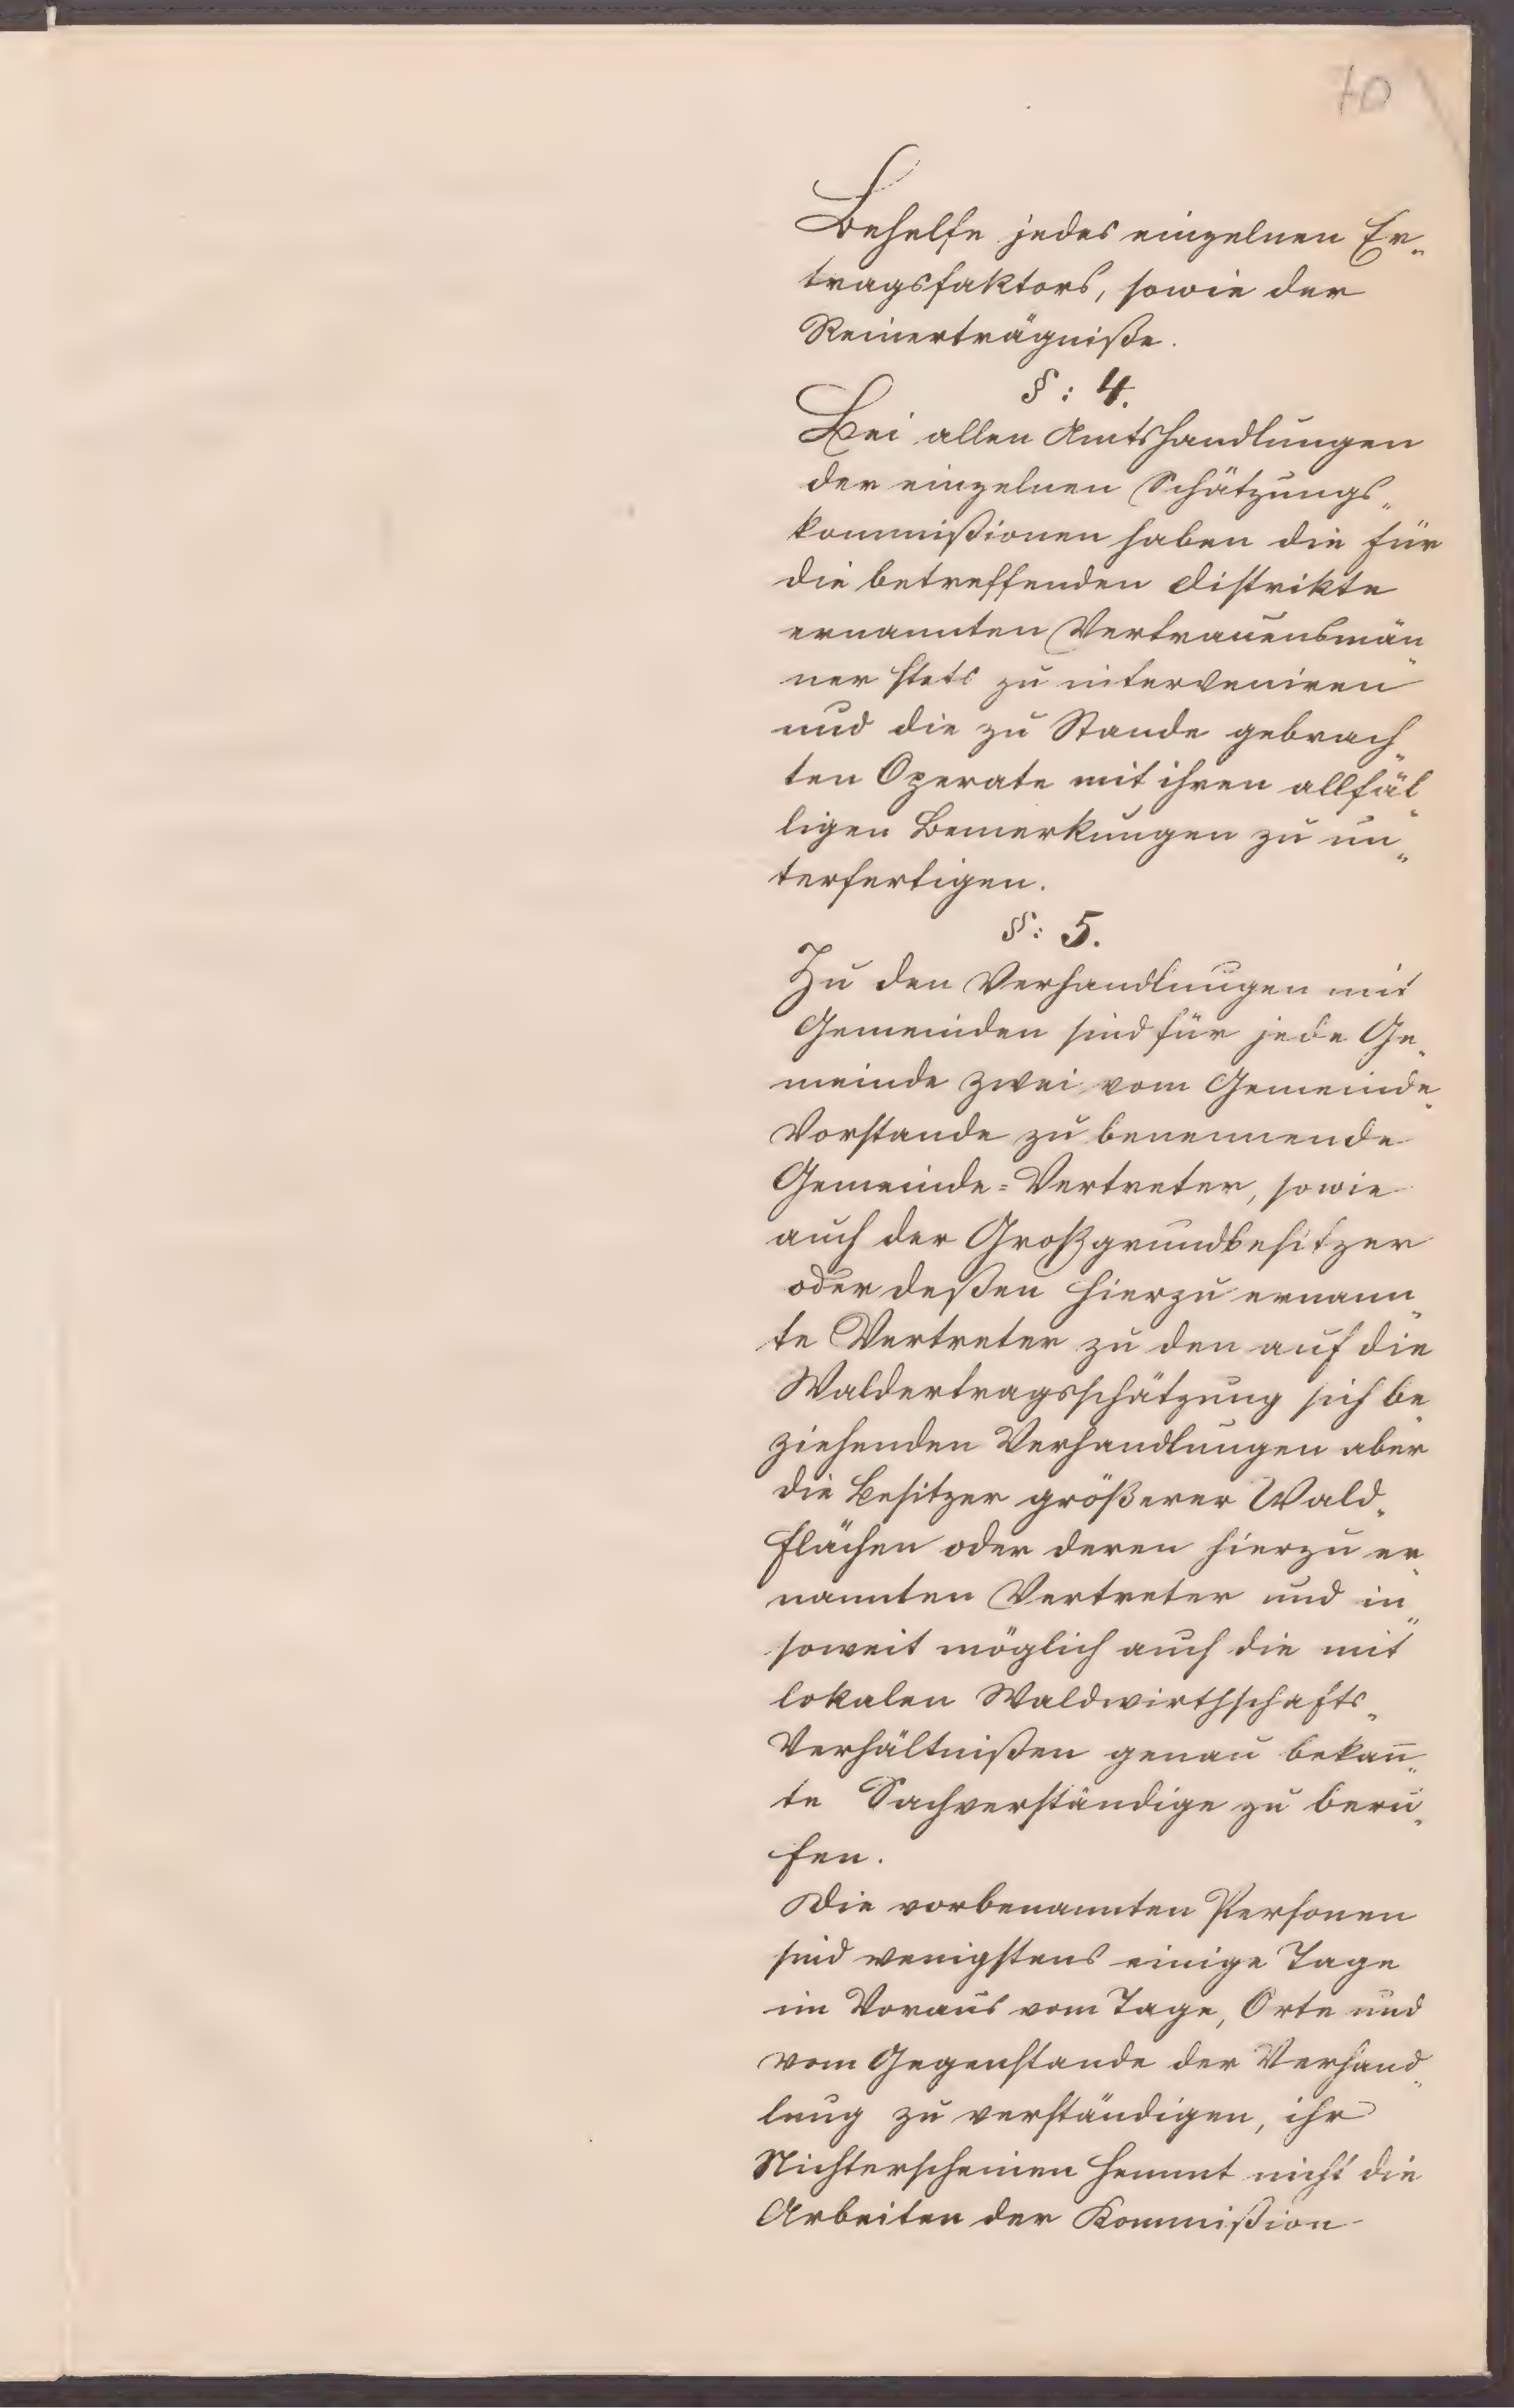 70
Behelfe jedes einzelnen Er„
tragsfaktors, sowie der
Reinerträgniße.
§: 4.
Bei allen Amtshandlungen
der einzelnen Schätzungs„
kommißionen haben die für
die betreffenden Distrikte
ernannten Vertrauensmän„
ner stets zu interveniren
und die zu Stande gebrach„
ten Operate mit ihren allfäl„
ligen Bemerkungen zu un„
terfertigen.
§: 5.
Zu den Verhandlungen mit
Gemeinden sind für jede Ge„
meinde zwei vom Gemeinde„
Vorstande zu benennende
Gemeinde=Vertreter, sowie
auch der Großgrundbesitzer
oder deßen hierzu ernann„
te Vertreter zu den auf die
Waldertragsschätzung sich be„
ziehenden Verhandlungen aber
die Besitzer größerer Wald„
flächen oder deren hierzu er„
nannten Vertreter und in„
soweit möglich auch die mit
lokalen Waldwirthschafts„
Verhältnißen genau bekan̄„
te Sachverständige zu beru„
fen.
Die vorbenannten Personen
sind wenigstens einige Tage
im Voraus vom Tage, Orte und
vom Gegenstande der Verhand„
lung zu verständigen, ihr
Nichterscheinen hemmt nicht die
Arbeiten der Kommißion